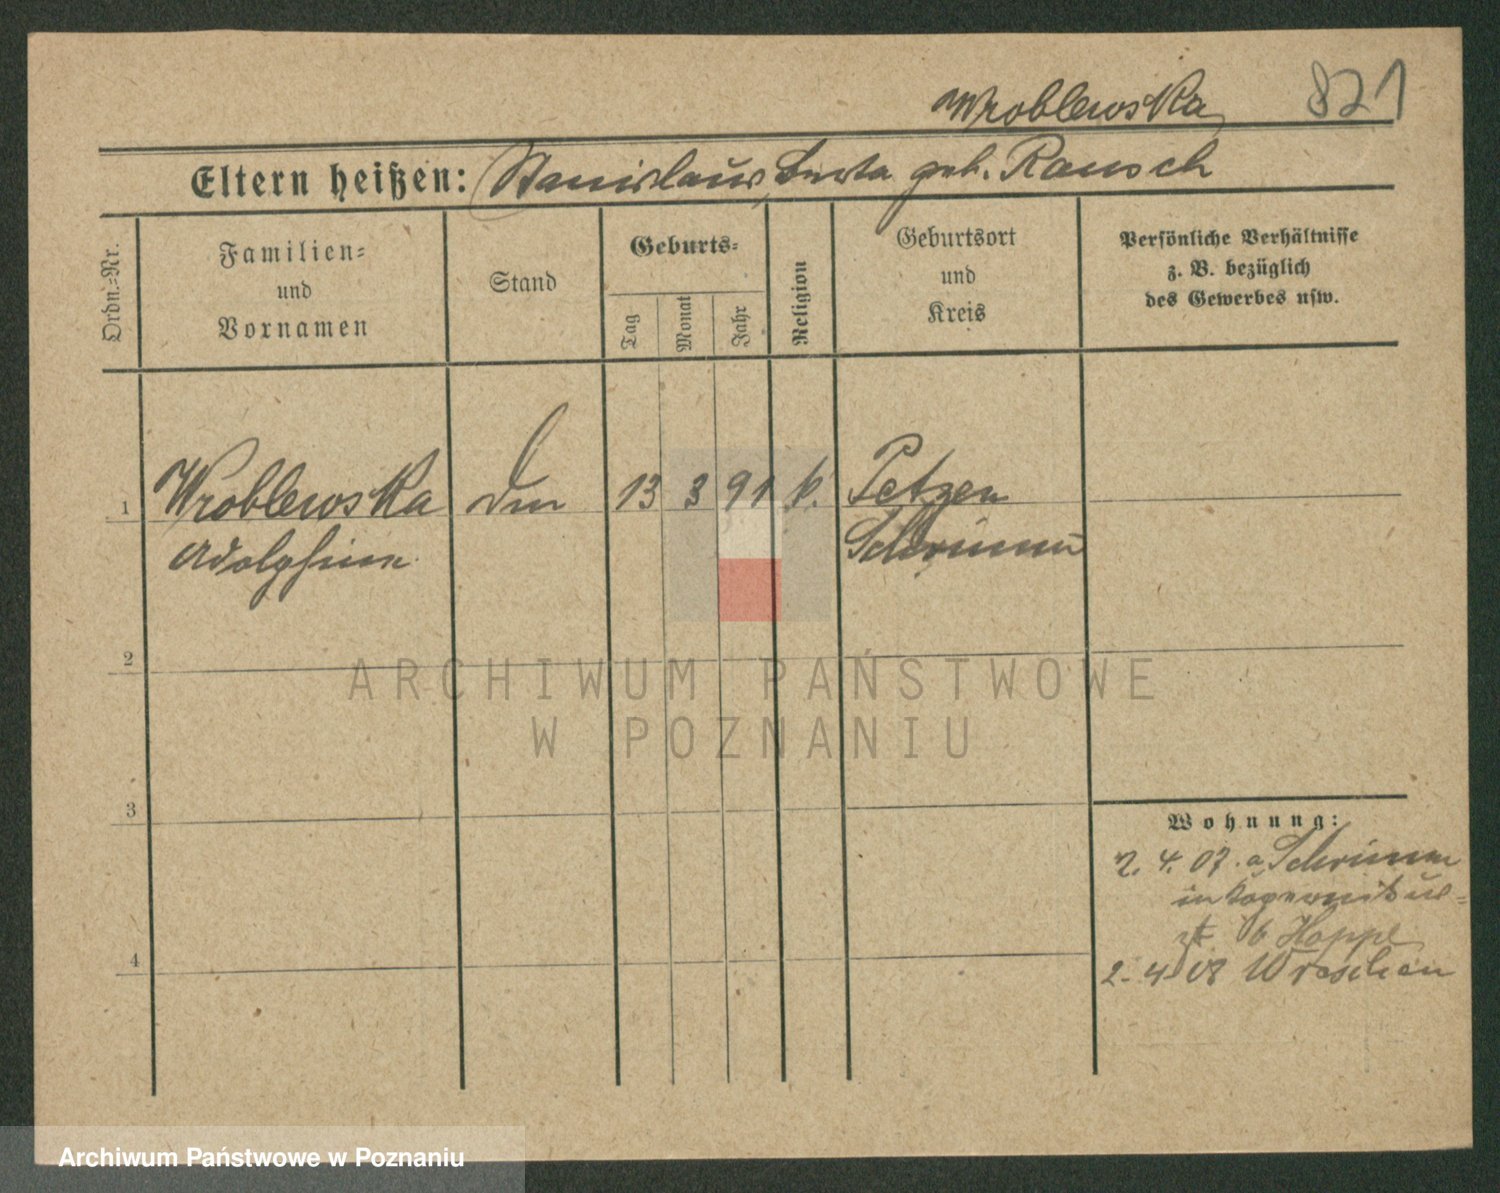 Wroblewska 821
Eltern heißen: Stanislaus, geb. Rausch
Ordn.=Nr.
Familien=
und
Vornamen
Stand
Geburts=
Tag
Monat
Jahr
Religion
Geburtsort
und
Kreis
Persönliche Verhältnisse
z. B. bezüglich
des Gewerbes usw.
1 Wroblewska 13 3 91 k. Petzen
Adolphine Schrimm
2
3
4
Wohnung:
2. 4. 07. a Schrimm
in Kopernikus=
st 6 Hoppe
2. 4. 08 Wreschen
ARCHIWUM PAŃSTWOWE
W POZNANIU
Archiwum Państwowe w Poznaniu